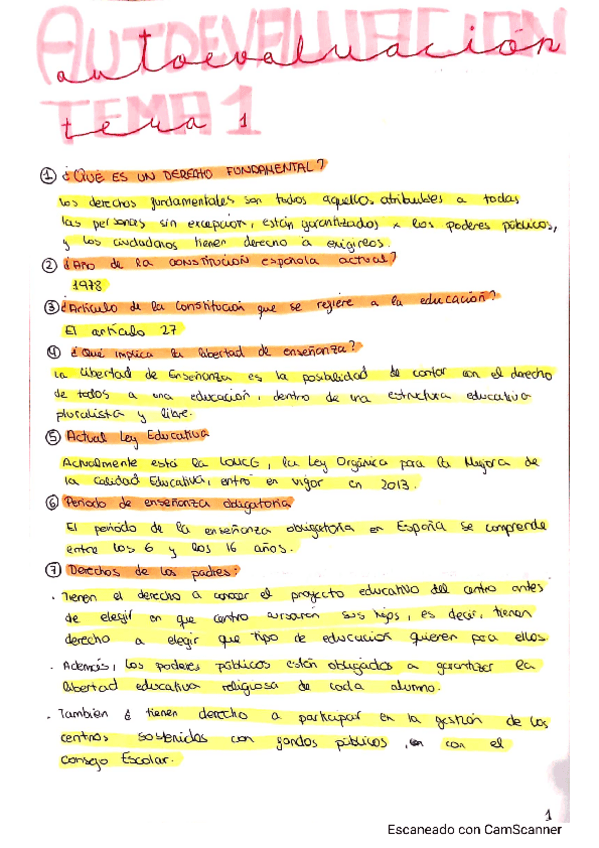 AUTOEVALUACIÓN
autoevaluación
TEMA 1
tema 1
① ¿QUÉ ES UN DERECHO FUNDAMENTAL?
los derechos fundamentales son todos aquellos atribuibles a todas
las personas sin excepción, están garantizados x los poderes públicos,
y los ciudadanos tienen derecho a exigirlos.
② ¿Año de la constitución española actual?
1978
③ ¿Artículo de la Constitución que se refiere a la educación?
El artículo 27
④ ¿Qué implica la libertad de enseñanza?
La libertad de Enseñanza es la posibilidad de contar con el derecho
de todos a una educación, dentro de una estructura educativa
pluralista y libre.
⑤ Actual Ley Educativa
Actualmente está la LOMCE, la Ley Orgánica para la Mejora de
la Calidad Educativa, entró en vigor en 2013.
⑥ Periodo de enseñanza obligatoria
El periodo de la enseñanza obligatoria en España se comprende
entre los 6 y los 16 años.
⑦ Derechos de los padres:
· Tienen el derecho a conocer el proyecto educativo del centro antes
de elegir en que centro cursarán sus hijos, es decir, tienen
derecho a elegir que tipo de educación quieren para ellos.
· Además, los poderes públicos están obligados a garantizar la
libertad educativa religiosa de cada alumno.
· También tienen derecho a participar en la gestión de los
centros sostenidos con fondos públicos, con el
Consejo Escolar.
1
Escaneado con CamScanner